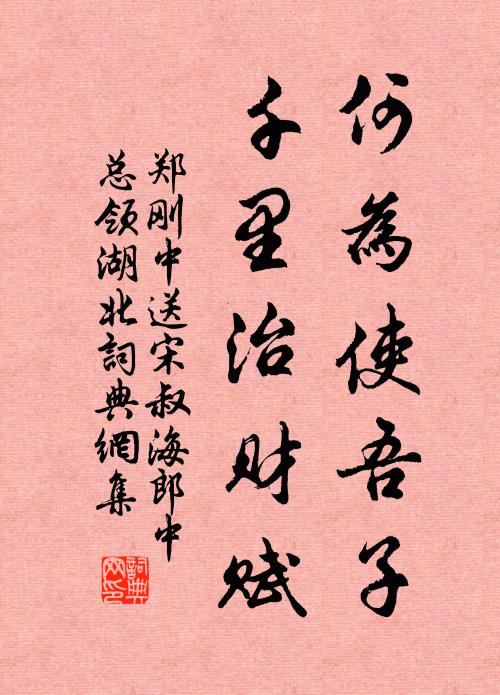 何為使吾子
千里治財賦
郑刚中送宋叔海郎中
总领湖北詞典網集
詞典
网印